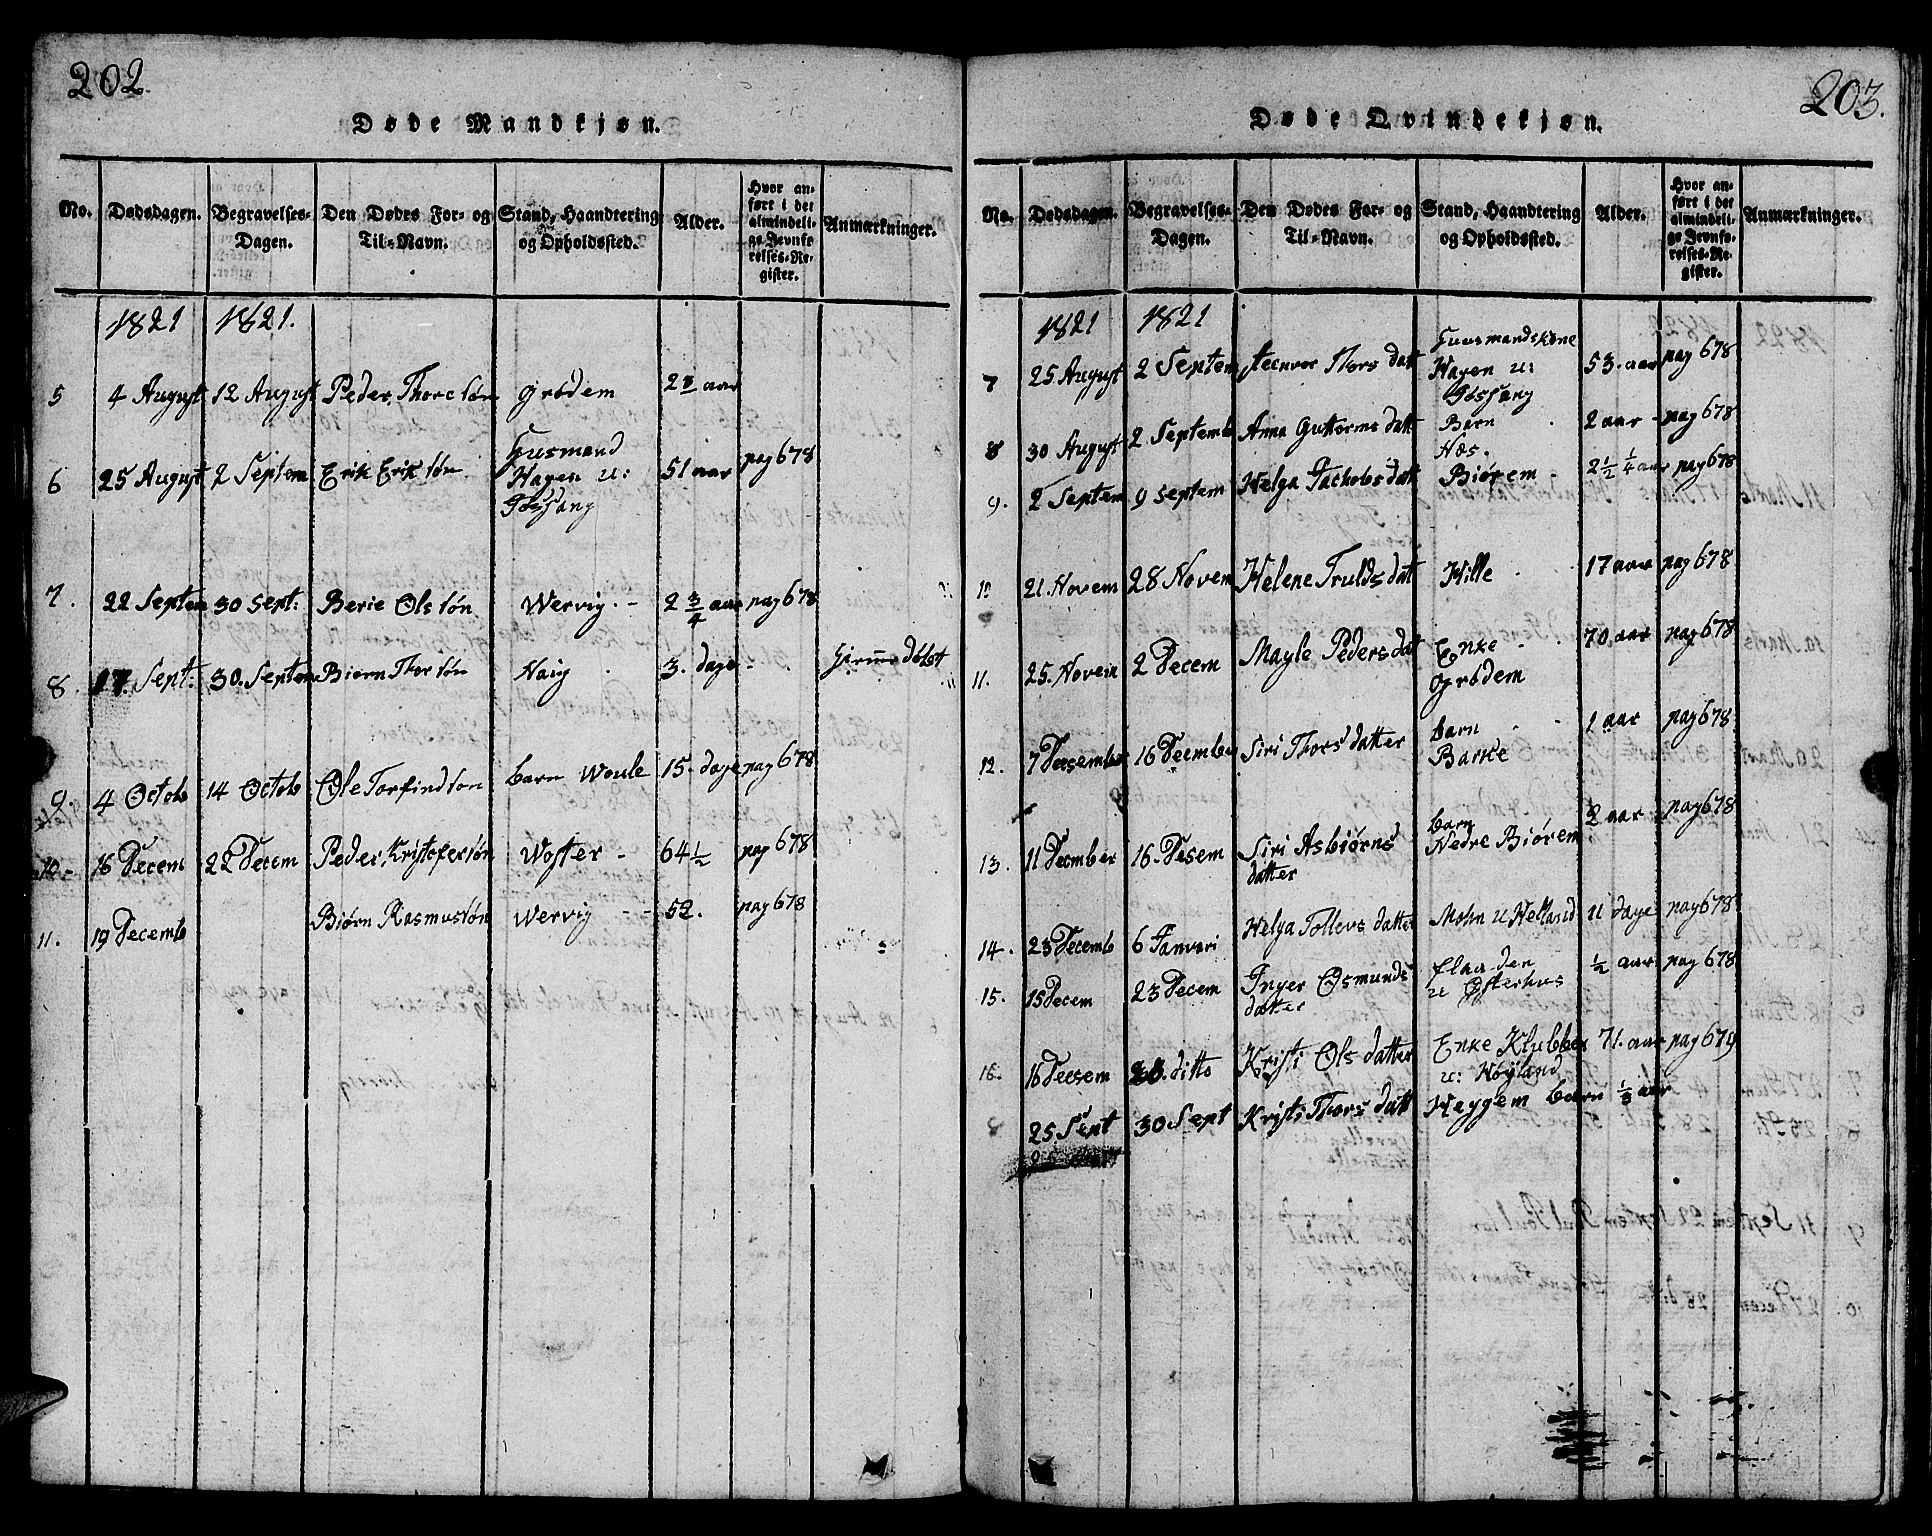 202.
Døde Mandkjøn.
No. Dødsdagen. Begravelses-Dagen. Den Dødes For- og Til-Navn. Stand, Haandtering og Opholdssted. Alder. Hvor anført i det almindelige Jevnførelses-Register. Anmærkninger.
1821 1821.
5 4 August 12 August Peder Thore søn Grødem aar
6 25 August 2 Septem Erik Erik søn Huusmand Hagen u: Gossang 51 aar pag 678
7. 22 Septem 30 Sept: Berie Ols søn Wervig. - 2 3/4 aar pag 678
8. 17. Sept: 30. Septem Biørn Thor søn Haig 3. dage - Hiemmedøbt
9. 4 Octob 14 Octob Ole Torfind søn barn Woule 15. dage pag 678
10.- 16 Decem 22 Decem Peder Kristofer søn Wofter - 64 1/2 pag 678
11. 19 Decemb Biørn Rasmus søn Wervig - - 52. pag 678
203.
Døde Qvindekjøn.
No. Dødsdagen. Begravelses-Dagen. Den Dødes For- og Til-Navn. Stand, Haandtering og Opholdssted. Alder. Hvor anført i det almindelige Jevnførelses-Register. Anmærkninger.
1821 1821
7 25 August 2 Septem Steenvor Thors datt Huusmandskone Hagen u: Gossang 53. aar pag 678
8 30 August 2 Septemb Anna Guttorms datt Barn Næs. 2 aar - pag 678
9. 2 Septem 9 Septem Helga Jachobs datt Biørem - 2 1/2 1/4 aar pag 678
10 21. Novem 28 Novem Helene Trulds dat Hille 17 aar pag 678
11. 25. Novem 2 Decem Magle Peders dat Enke Grødem 70 aar pag 678
12. 7 Decsember 16 December Siri Thors datter barn Barke 1 aar pag 678
13. 11 December 16. Desem Siri Asbiørns datter barn Nedre Biørem 2 aar pag 678
14. 23 Decemb 6 Januari Helga Tollevs datter Mohn u Helland 11 dage pag 678
15. 15 Decem 23 Decem Inger Osmunds datter Flaaden u Østerhus 1/2 aar pag 678
16. 16 Decsem 23. ditto Kristi Ols datter Enke Klubben u: Høyland 71. aar pag 679
25. Sept 30 Sept Kristi Thors datt Heggem barn 1/3 aar